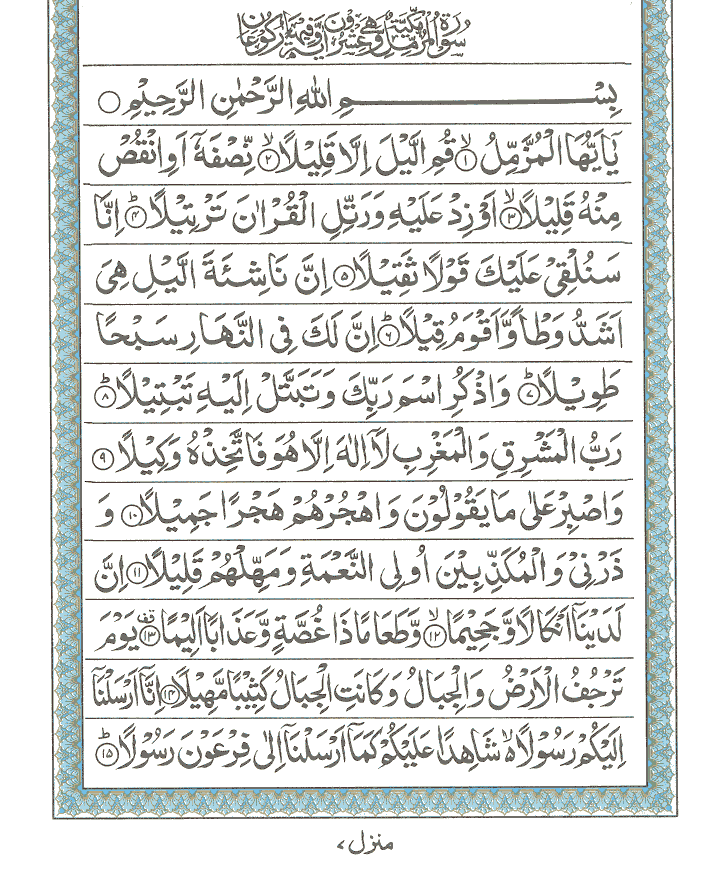 سورة المزمل مكية وهي عشرون آية وفيها ركوعان
بِسْمِ اللّٰهِ الرَّحْمٰنِ الرَّحِیْمِ ○
یٰۤاَیُّهَا الْمُزَّمِّلُ ۙ﴿۱﴾ قُمِ الَّیْلَ اِلَّا قَلِیْلًا ۙ﴿۲﴾ نِّصْفَهٗۤ اَوِ انْقُصْ
مِنْهُ قَلِیْلًا ۙ﴿۳﴾ اَوْ زِدْ عَلَیْهِ وَ رَتِّلِ الْقُرْاٰنَ تَرْتِیْلًا ؕ﴿۴﴾ اِنَّا
سَنُلْقِیْ عَلَیْكَ قَوْلًا ثَقِیْلًا ﴿۵﴾ اِنَّ نَاشِئَةَ الَّیْلِ هِیَ
اَشَدُّ وَطْاً وَّ اَقْوَمُ قِیْلًا ؕ﴿۶﴾ اِنَّ لَكَ فِی النَّهَارِ سَبْحًا
طَوِیْلًا ؕ﴿۷﴾ وَ اذْكُرِ اسْمَ رَبِّكَ وَ تَبَتَّلْ اِلَیْهِ تَبْتِیْلًا ؕ﴿۸﴾
رَبُّ الْمَشْرِقِ وَ الْمَغْرِبِ لَاۤ اِلٰهَ اِلَّا هُوَ فَاتَّخِذْهُ وَكِیْلًا ﴿۹﴾
وَ اصْبِرْ عَلٰی مَا یَقُوْلُوْنَ وَ اهْجُرْهُمْ هَجْرًا جَمِیْلًا ﴿۱۰﴾ وَ
ذَرْنِیْ وَ الْمُكَذِّبِیْنَ اُولِی النَّعْمَةِ وَ مَهِّلْهُمْ قَلِیْلًا ﴿۱۱﴾ اِنَّ
لَدَیْنَاۤ اَنْكَالًا وَّ جَحِیْمًا ۙ﴿۱۲﴾ وَّ طَعَامًا ذَا غُصَّةٍ وَّ عَذَابًا اَلِیْمًا ۗ﴿۱۳﴾ یَوْمَ
تَرْجُفُ الْاَرْضُ وَ الْجِبَالُ وَ كَانَتِ الْجِبَالُ كَثِیْبًا مَّهِیْلًا ﴿۱۴﴾ اِنَّاۤ اَرْسَلْنَاۤ
اِلَیْكُمْ رَسُوْلًا ۙ۬ شَاهِدًا عَلَیْكُمْ كَمَاۤ اَرْسَلْنَاۤ اِلٰی فِرْعَوْنَ رَسُوْلًا ؕ﴿۱۵﴾
منزل ۷